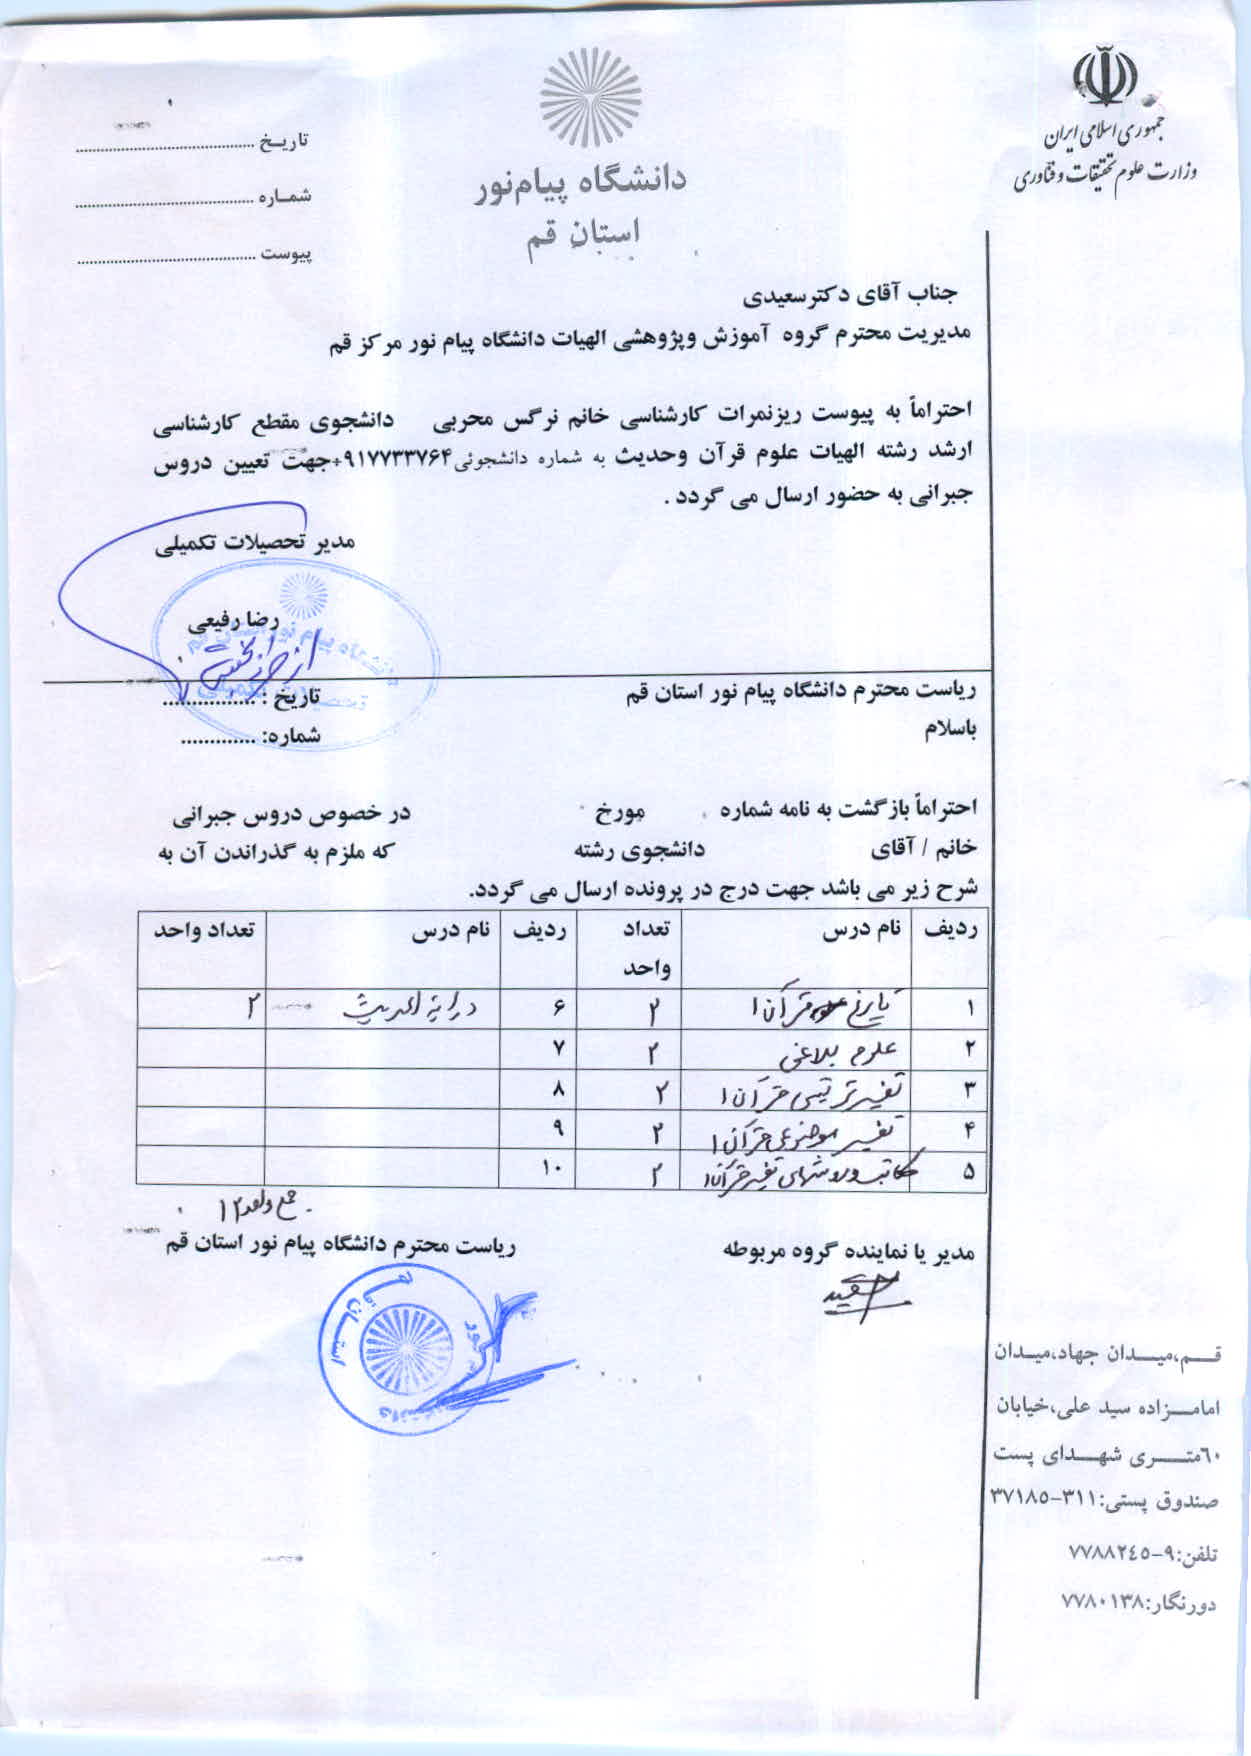 جمهوری اسلامی ایران
وزارت علوم تحقیقات و فناوری
دانشگاه پیام‌نور
استان قم
تاریخ ........................................
شماره ........................................
پیوست ........................................
جناب آقای دکترسعیدی
مدیریت محترم گروه آموزش وپژوهشی الهیات دانشگاه پیام نور مرکز قم
احتراماً به پیوست ریزنمرات کارشناسی خانم نرگس محربی دانشجوی مقطع کارشناسی
ارشد رشته الهیات علوم قرآن وحدیث به شماره دانشجوئی ۹۱۷۷۳۳۷۶۴۰ جهت تعیین دروس
جبرانی به حضور ارسال می گردد .
مدیر تحصیلات تکمیلی
رضا رفیعی
دانشگاه پیام نور استان قم
تحصیلات تکمیلی
ریاست محترم دانشگاه پیام نور استان قم
تاریخ : ................
باسلام
شماره: .............
احتراماً بازگشت به نامه شماره مورخ در خصوص دروس جبرانی
خانم / آقای دانشجوی رشته که ملزم به گذراندن آن به
شرح زیر می باشد جهت درج در پرونده ارسال می گردد.
ردیف نام درس تعداد واحد ردیف نام درس تعداد واحد
۱ تاریخ قرآن ۱ ۲ ۶ درایة الحدیث ۲
۲ علوم بلاغی ۲ ۷
۳ تفسیر ترتیبی قرآن ۱ ۲ ۸
۴ تفسیر موضوعی قرآن ۱ ۲ ۹
۵ مکاتب و روشهای تفسیر قرآن ۱ ۲ ۱۰
جمع واحد ۱۲
مدیر یا نماینده گروه مربوطه
ریاست محترم دانشگاه پیام نور استان قم
قم،میدان جهاد،میدان
امامزاده سید علی،خیابان
۶۰متری شهدای پست
صندوق پستی:۳۱۱-۳۷۱۸۵
تلفن:۹-۷۷۸۸۲۴۵
دورنگار:۷۷۸۰۱۳۸